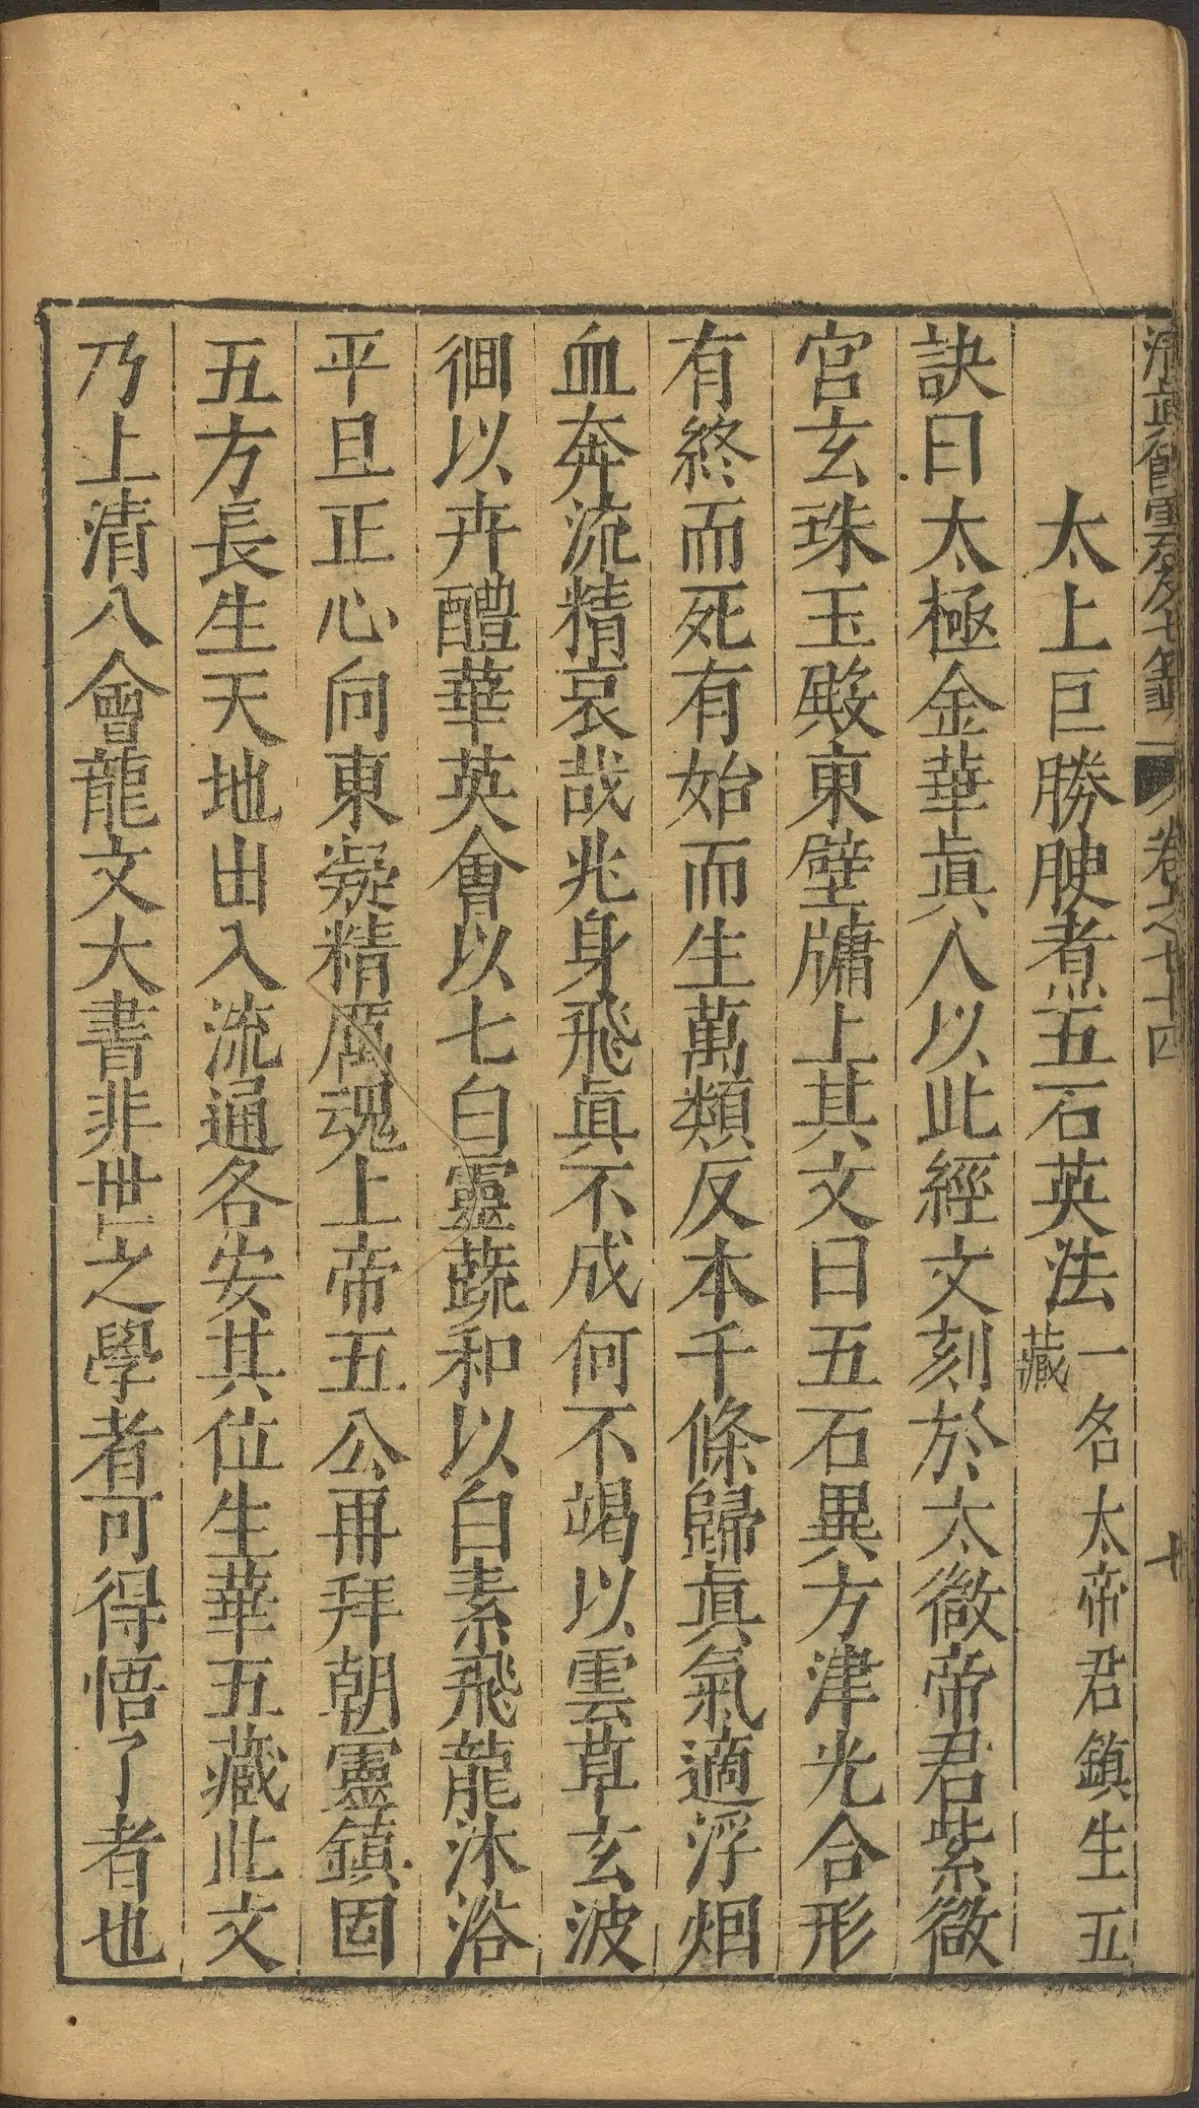 清真館雲笈七籤 卷之七十四 十
太上巨勝腴煮五石英法一名太帝君鎮生五藏
訣曰太極金華眞人以此經文刻於太微帝君紫微
宮玄珠玉殿東壁牖上其文曰五石異方津光合形
有終而死有始而生萬類反本千條歸眞氣適浮烟
血奔流精哀哉兆身飛眞不成何不竭以雲草玄波
徊以卉醴華英會以七白靈蔬和以白素飛龍沐浴
平旦正心向東凝精厲魂上帝五公再拜朝靈鎮固
五方長生天地出入流通各安其位生華五藏此文
乃上清八會龍文大書非世之學者可得悟了者也